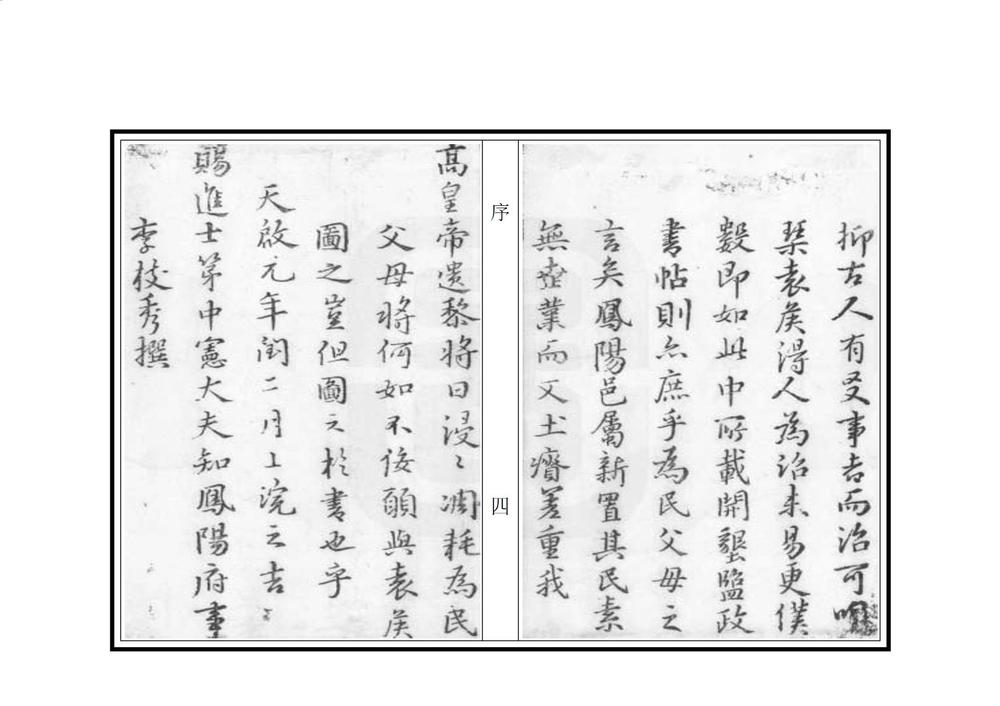 抑古人有叟事者而治可鳴
琹袁矦得人為治未易更僕
數即如此中所載開墾鹽政
書帖則亦庶乎為民父母之
言矣鳳陽邑屬新置其民素
無業而又土瘠差重我
序
四
高皇帝遺黎將日浸〻凋耗為民
父母將何如不佞願與袁矦
圖之豈但圖之於書也乎
天啟元年閏二月上浣之吉
賜進士第中憲大夫知鳳陽府事
李枝秀撰